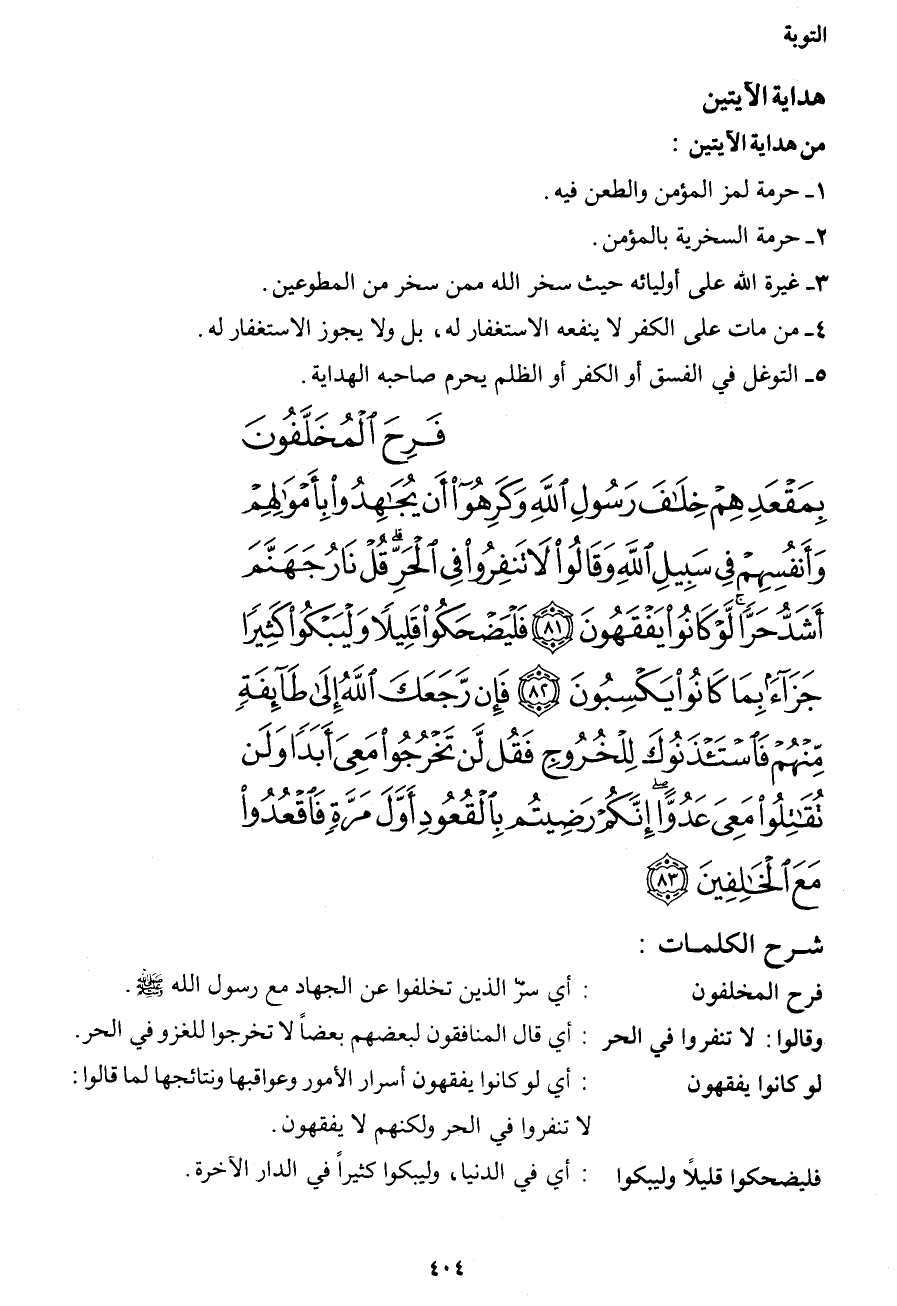 التوبة
هداية الآيتين
من هداية الآيتين :
١ـ حرمة لمز المؤمن والطعن فيه .
٢ـ حرمة السخرية بالمؤمن .
٣ـ غيرة الله على أوليائه حيث سخر الله ممن سخر من المطوعين .
٤ـ من مات على الكفر لا ينفعه الاستغفار له ، بل ولا يجوز الاستغفار له .
٥ـ التوغل في الفسق أو الكفر أو الظلم يحرم صاحبه الهداية .
فَرِحَ ٱلْمُخَلَّفُونَ
بِمَقْعَدِهِمْ خِلَٰفَ رَسُولِ ٱللَّهِ وَكَرِهُوٓا۟ أَن يُجَٰهِدُوا۟ بِأَمْوَٰلِهِمْ
وَأَنفُسِهِمْ فِى سَبِيلِ ٱللَّهِ وَقَالُوا۟ لَا تَنفِرُوا۟ فِى ٱلْحَرِّ ۗ قُلْ نَارُ جَهَنَّمَ
أَشَدُّ حَرًّا ۚ لَّوْ كَانُوا۟ يَفْقَهُونَ ٨١ فَلْيَضْحَكُوا۟ قَلِيلًا وَلْيَبْكُوا۟ كَثِيرًا
جَزَآءًۢ بِمَا كَانُوا۟ يَكْسِبُونَ ٨٢ فَإِن رَّجَعَكَ ٱللَّهُ إِلَىٰ طَآئِفَةٍ
مِّنْهُمْ فَٱسْتَـْٔذَنُوكَ لِلْخُرُوجِ فَقُل لَّن تَخْرُجُوا۟ مَعِىَ أَبَدًا وَلَن
تُقَٰتِلُوا۟ مَعِىَ عَدُوًّا ۖ إِنَّكُمْ رَضِيتُم بِٱلْقُعُودِ أَوَّلَ مَرَّةٍ فَٱقْعُدُوا۟
مَعَ ٱلْخَٰلِفِينَ ٨٣
شرح الكلمات :
فرح المخلفون : أي سرّ الذين تخلفوا عن الجهاد مع رسول الله ﷺ .
وقالوا : لا تنفروا في الحر : أي قال المنافقون لبعضهم بعضاً لا تخرجوا للغزو في الحر .
لو كانوا يفقهون : أي لو كانوا يفقهون أسرار الأمور وعواقبها ونتائجها لما قالوا :
لا تنفروا في الحر ولكنهم لا يفقهون .
فليضحكوا قليلاً وليبكوا : أي في الدنيا ، وليبكوا كثيراً في الدار الآخرة .
٤٠٤